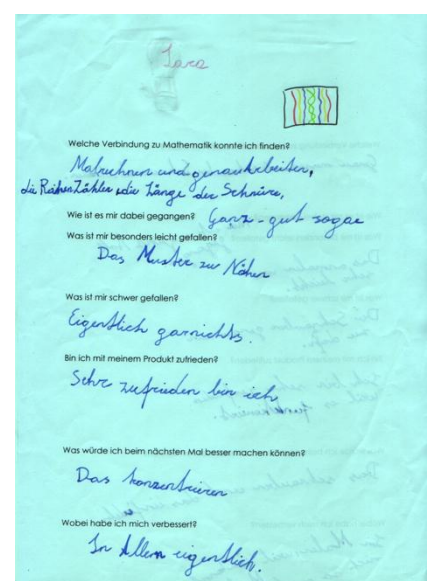 Sara
Welche Verbindung zu Mathematik konnte ich finden?
Malrechnen und genau Arbeiten,
die Reihen Zählen, die Länge der Schnüre,
Wie ist es mir dabei gegangen? Ganz - gut sogar
Was ist mir besonders leicht gefallen?
Das Muster zu Nähen
Was ist mir schwer gefallen?
Eigentlich garnichts.
Bin ich mit meinem Produkt zufrieden?
Sehr zufrieden bin ich
Was würde ich beim nächsten Mal besser machen können?
Das konzentrieren
Wobei habe ich mich verbessert?
In Allem eigentlich.